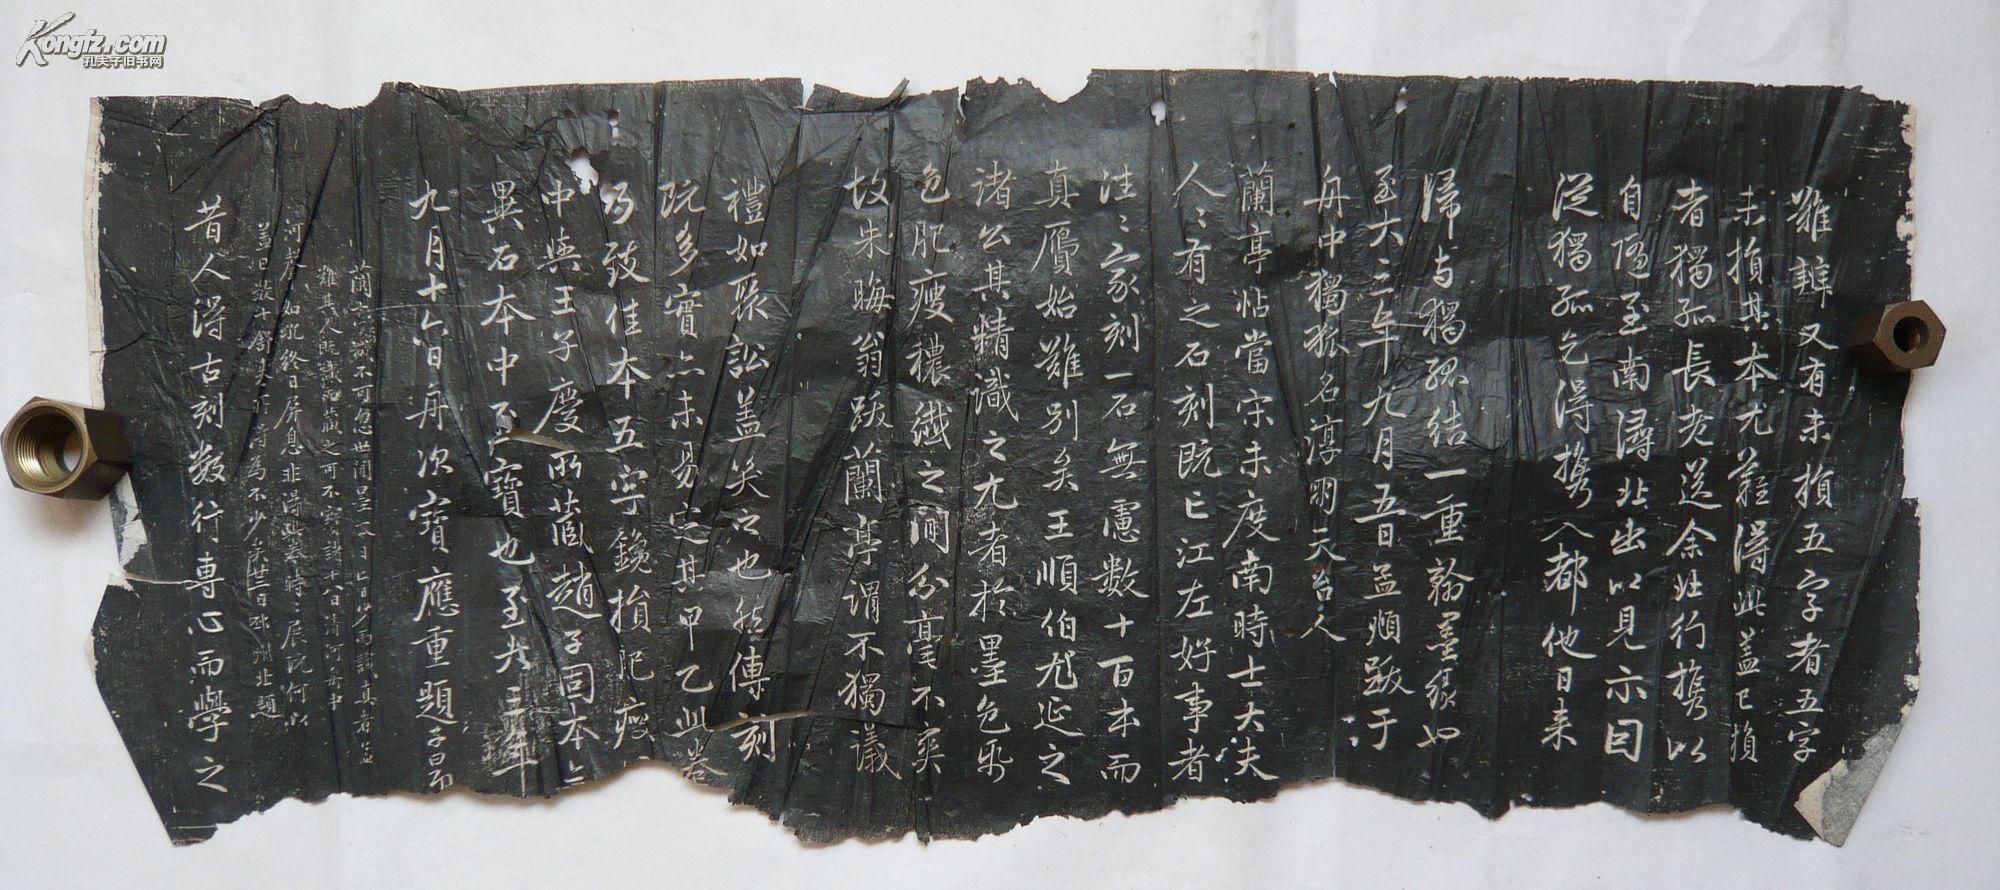 難辯又有未損五字者五字
未損其本尤難得此蓋已損
者獨孤長老送余北行攜以
自隨至南潯北出以見示因
從獨孤乞得攜入都他日来
歸与獨孤結一重翰墨緣也
至大三年九月五日孟頫跋于
舟中獨孤名淳朋天台人
蘭亭帖當宋未度南時士大夫
人〻有之石刻既亡江左好事者
往〻家刻一石無慮數十百本而
真贗始難別矣王順伯尤延之
諸公其精識之尤者於墨色紙
色肥瘦穠纖之間分毫不爽
故朱晦翁跋蘭亭謂不獨議
禮如聚訟蓋笑之也然傳刻
既多實亦未易定其甲乙此卷
乃致佳本五字鑱損肥瘦
中與王子慶所藏趙子固本
異石本中至寶也至大三年
九月十六日舟次寶應重題子昂
蘭亭誠不可忽世間墨本日亡日少而識真者蓋
難其人既識而藏之可不寶諸十八日清河舟中
河聲如吼終日屏息非得此卷時〻展玩何以
蓋日數十舒卷所得為不少矣廿二日邳州北題
昔人得古刻數行專心而學之
Kongfz.com
孔夫子旧书网